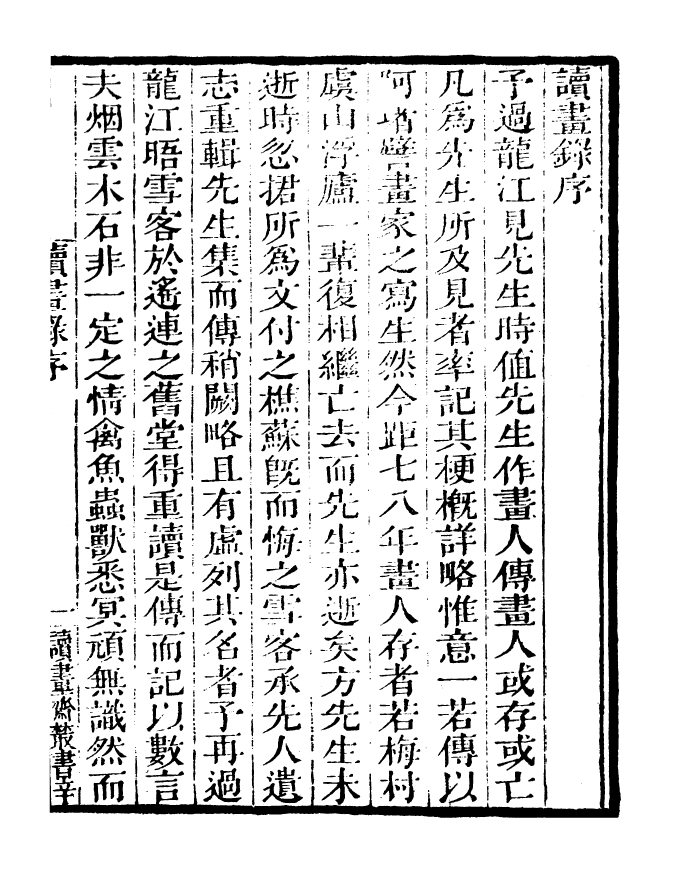 讀畫錄序
予過龍江見先生時值先生作畫人傳畫人或存或亡
凡為先生所及見者率記其梗概詳略惟意一若傳以
阿堵譬畫家之寫生然今距七八年畫人存者若梅村
虞山浮廬一輩復相繼亡去而先生亦逝矣方先生未
逝時忽捃所為文付之樵蘇既而悔之雪客承先人遺
志重輯先生集而傳稍闕略且有虛列其名者予再過
龍江晤雪客於遙連之舊堂得重讀是傳而記以數言
夫烟雲木石非一定之情禽魚蟲獸悉冥頑無識然而
讀畫錄序
一
讀畫齋叢書辛